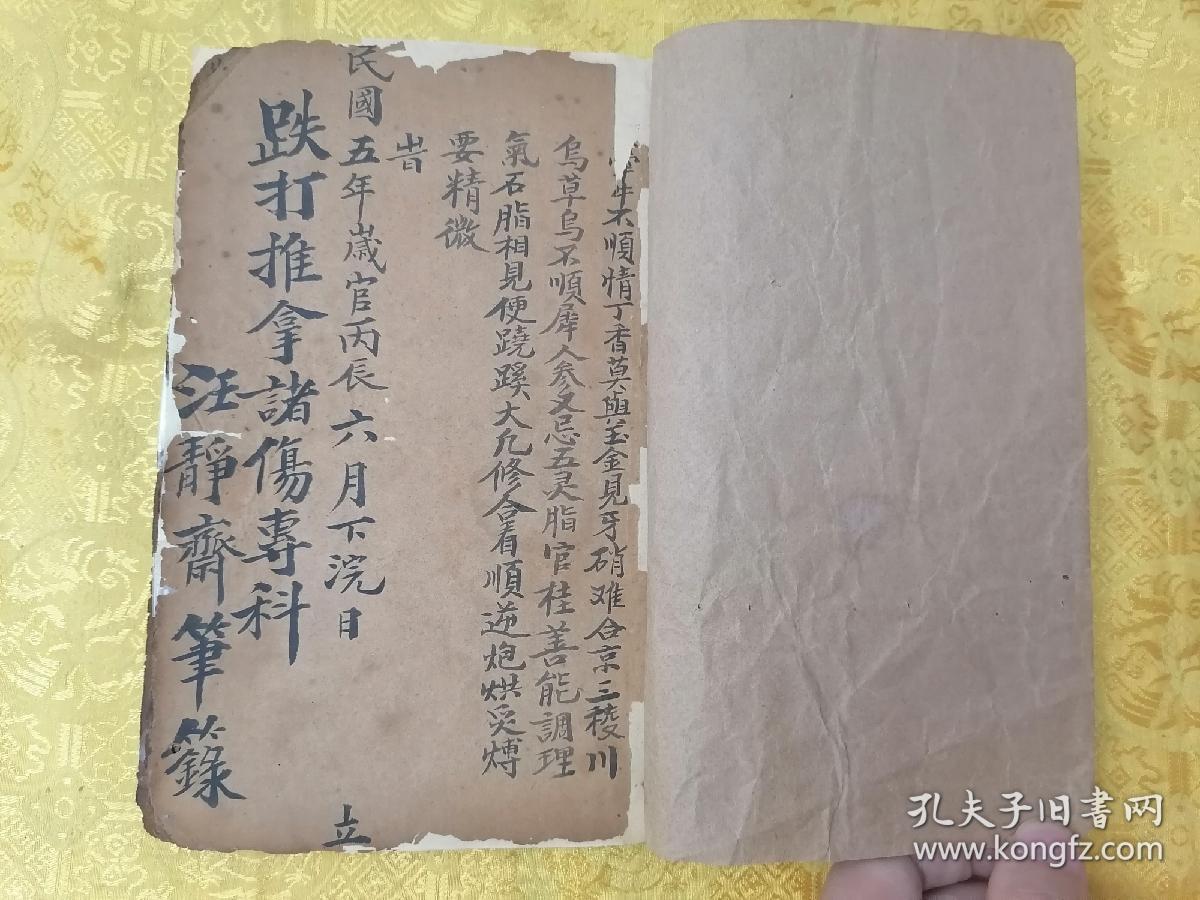 牽牛不順情丁香莫與玉金見牙硝难合京三稜川
烏草烏不順犀人參又忌五灵脂官桂善能調理
氣石脂相見便蹺蹊大凡修合看順逆炮烘炙煿
要精微
旹
民國五年歲官丙辰六月下浣日 立
跌打推拿諸傷專科
汪靜齋筆錄
孔夫子旧书网
www.kongfz.com